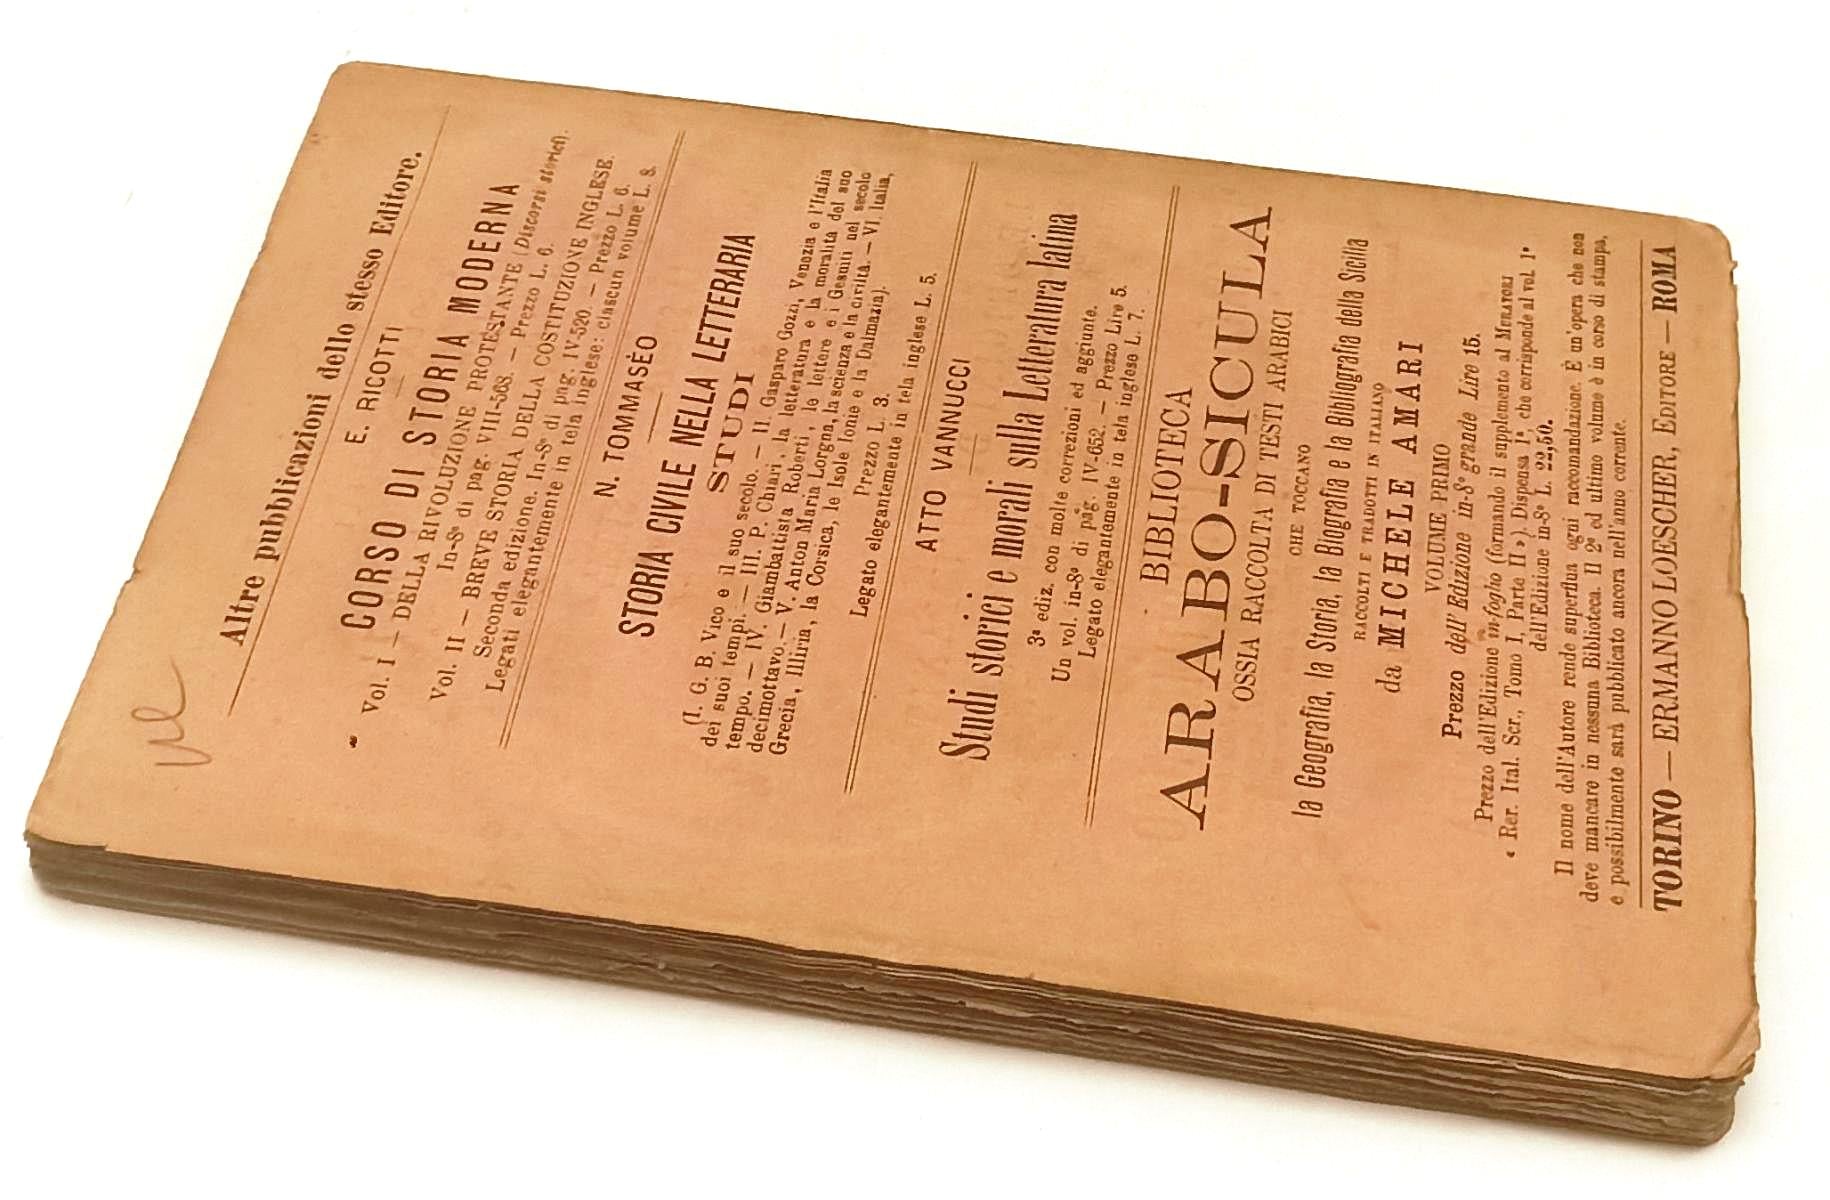 Altre pubblicazioni dello stesso Editore.
E. RICOTTI
CORSO DI STORIA MODERNA
Vol. I — DELLA RIVOLUZIONE PROTESTANTE (Discorsi storici).
In-8° di pag. VIII-568. — Prezzo L. 6.
Vol. II — BREVE STORIA DELLA COSTITUZIONE INGLESE.
Seconda edizione. In-8° di pag. IV-520. — Prezzo L. 6.
Legati elegantemente in tela inglese: ciascun volume L. 8.
N. TOMMASÈO
STORIA CIVILE NELLA LETTERARIA
STUDI
(I. G. B. Vico e il suo secolo. — II. Gasparo Gozzi, Venezia e l'Italia
dei suoi tempi. — III. P. Chiari, la letteratura e la moralità del suo
tempo. — IV. Giambattista Roberti, le lettere e i Gesuiti nel secolo
decimottavo. — V. Anton Maria Lorgna, la scienza e la civiltà. — VI. Italia,
Grecia, Illiria, la Corsica, le Isole Ionie e la Dalmazia).
Prezzo L. 3.
Legato elegantemente in tela inglese L. 5.
ATTO VANNUCCI
Studi storici e morali sulla Letteratura latina
3ª ediz. con molte correzioni ed aggiunte.
Un vol. in-8° di pag. IV-652. — Prezzo Lire 5.
Legato elegantemente in tela inglese L. 7.
BIBLIOTECA
ARABO-SICULA
OSSIA RACCOLTA DI TESTI ARABICI
CHE TOCCANO
la Geografia, la Storia, la Biografia e la Bibliografia della Sicilia
RACCOLTI E TRADOTTI IN ITALIANO
da MICHELE AMARI
VOLUME PRIMO
Prezzo dell'Edizione in-8° grande Lire 15.
Prezzo dell'Edizione in-foglio (formando il supplemento al MURATORI
« Rer. Ital. Scr., Tomo I, Parte II »). Dispensa 1ª, che corrisponde al vol. 1°
dell'Edizione in-8° L. 22,50.
Il nome dell'Autore rende superflua ogni raccomandazione. È un'opera che non
deve mancare in nessuna Biblioteca. Il 2° ed ultimo volume è in corso di stampa,
e possibilmente sarà pubblicato ancora nell'anno corrente.
TORINO — ERMANNO LOESCHER, EDITORE — ROMA